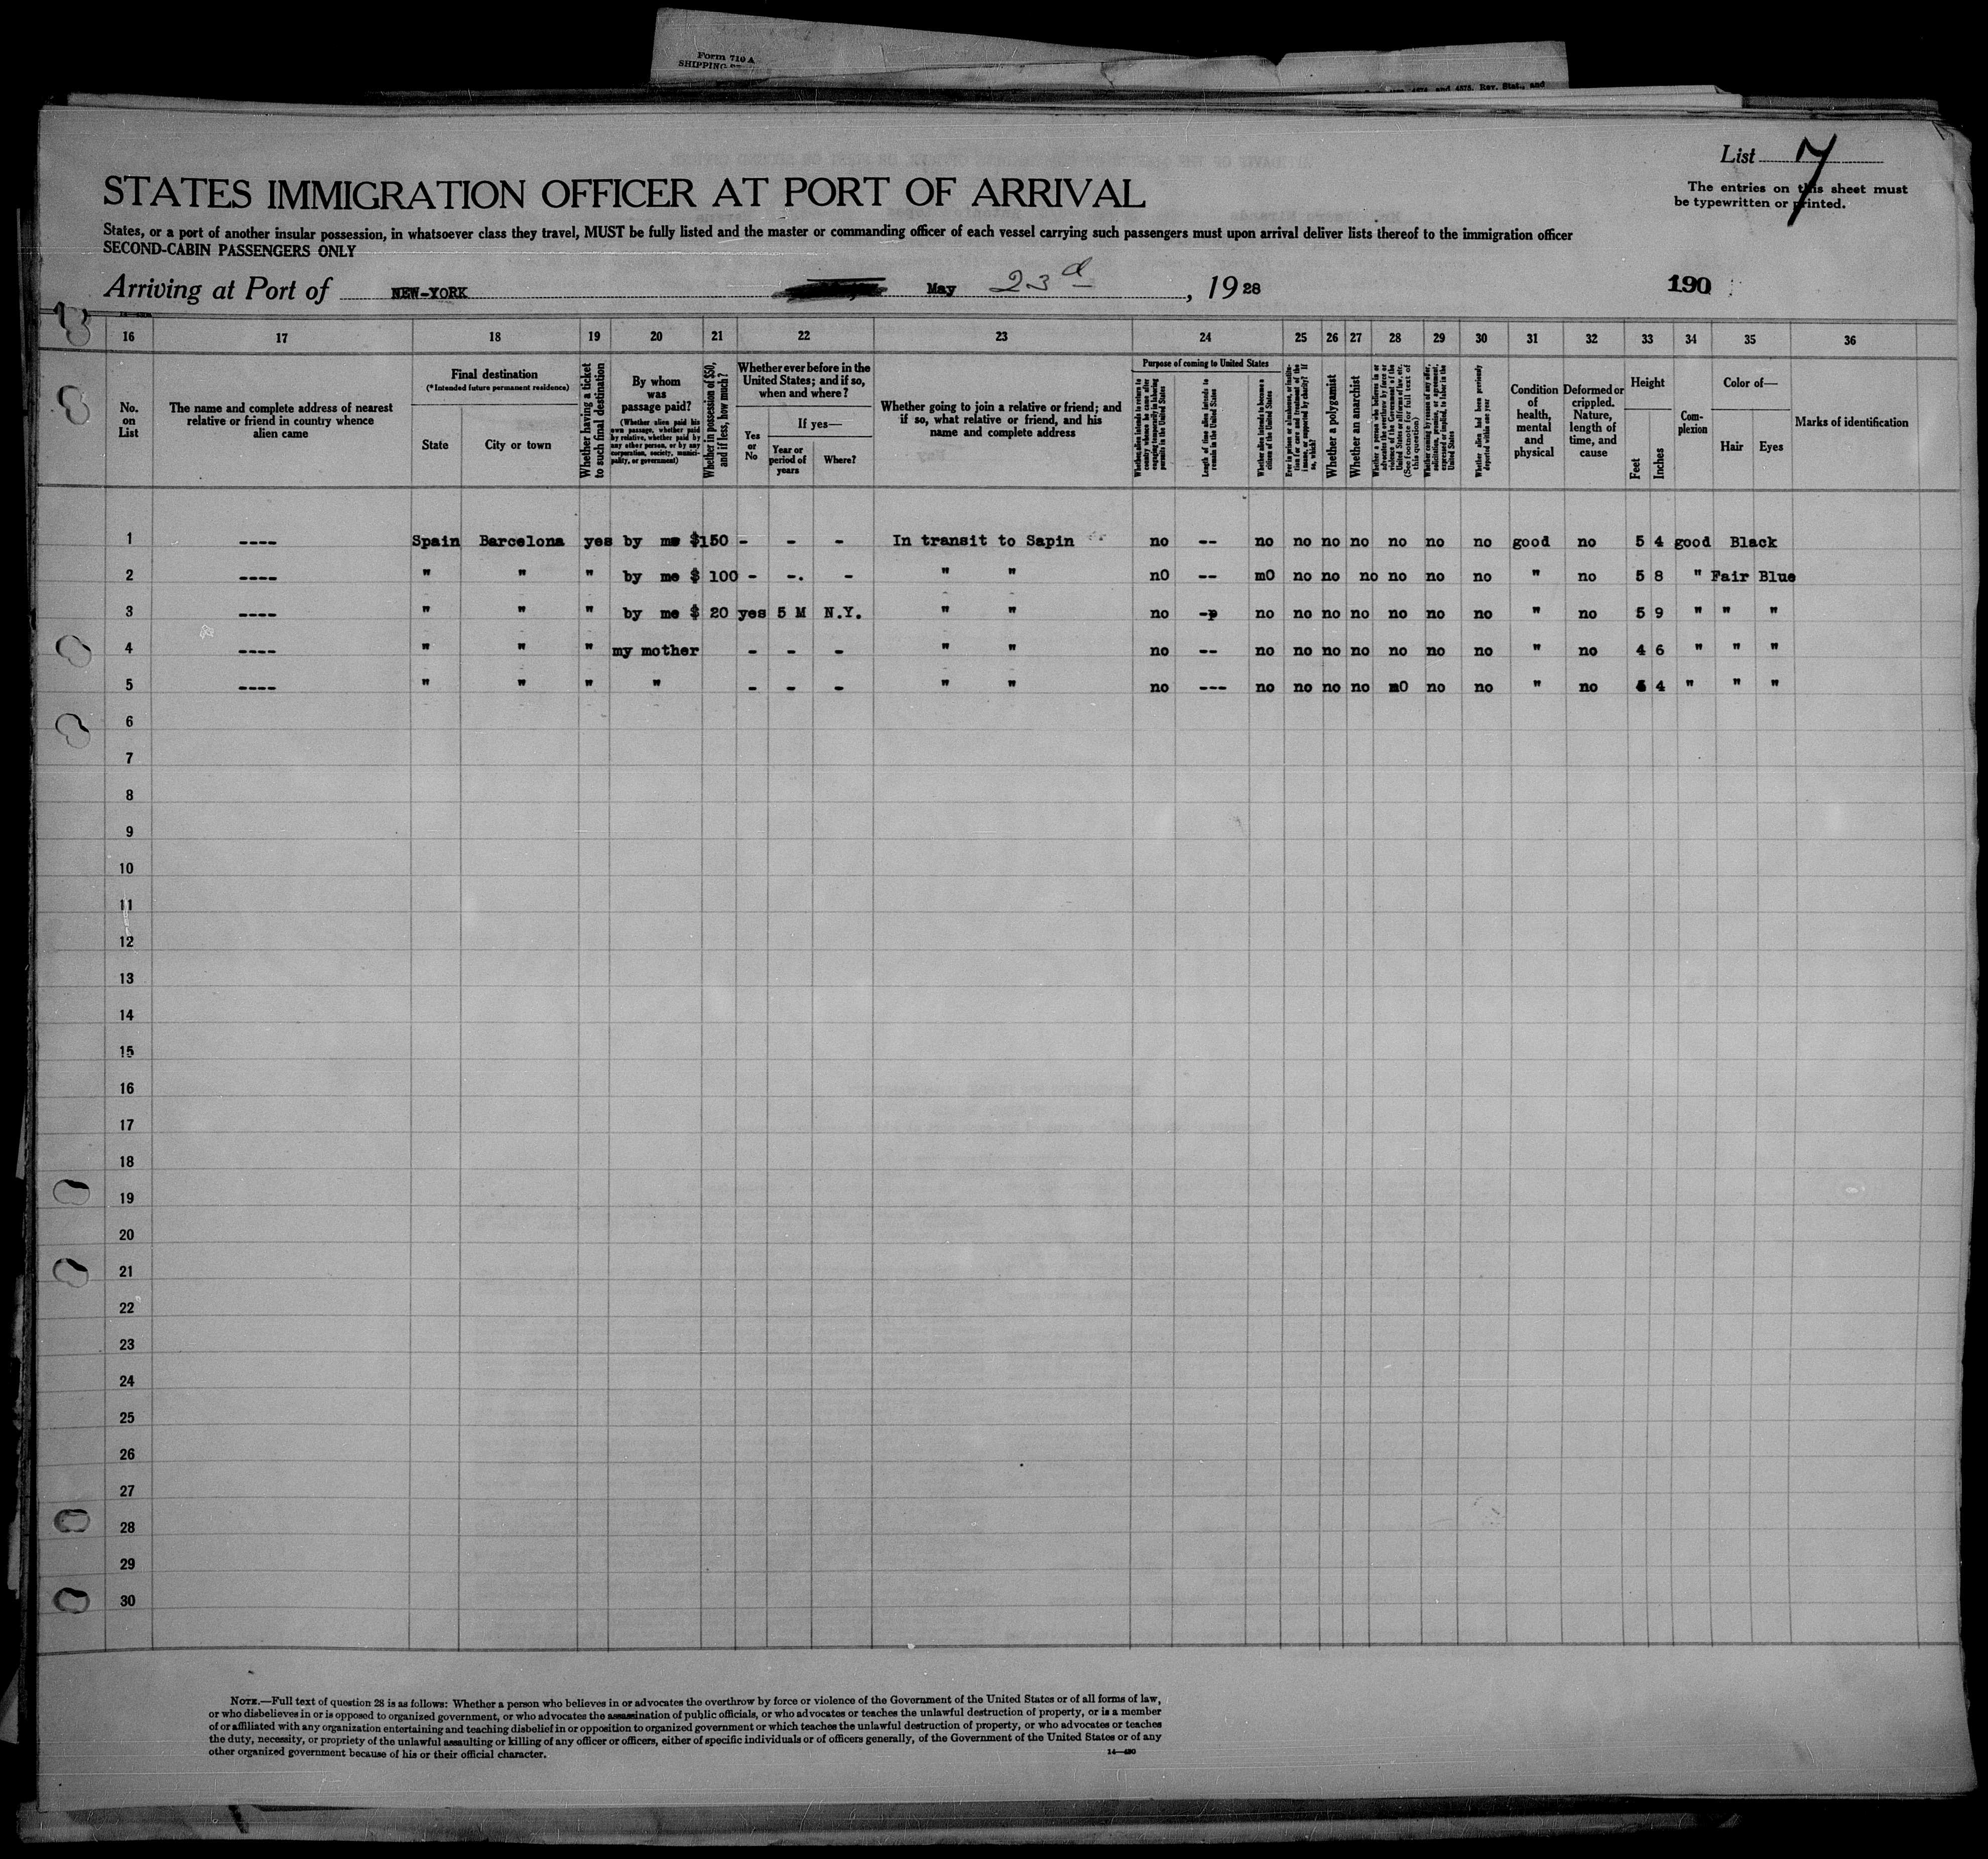 Form 710 A
SHIPPING
and 4575. Rev. Stat., and
List 7
The entries on this sheet must
be typewritten or printed.
STATES IMMIGRATION OFFICER AT PORT OF ARRIVAL
States, or a port of another insular possession, in whatsoever class they travel, MUST be fully listed and the master or commanding officer of each vessel carrying such passengers must upon arrival deliver lists thereof to the immigration officer
SECOND-CABIN PASSENGERS ONLY
Arriving at Port of NEW-YORK May 23d, 1928 190
16 17 18 19 20 21 22 23 24 25 26 27 28 29 30 31 32 33 34 35 36
No. on List
The name and complete address of nearest relative or friend in country whence alien came
Final destination
(*Intended future permanent residence)
State
City or town
Whether having a ticket to such final destination
By whom was passage paid?
(Whether alien paid his own passage, whether paid by relative, whether paid by any other person, or by any corporation, society, municipality, or government)
Whether in possession of $50, and if less, how much?
Whether ever before in the United States; and if so, when and where?
Yes or No
If yes—
Year or period of years
Where?
Whether going to join a relative or friend; and if so, what relative or friend, and his name and complete address
Purpose of coming to United States
Whether alien intends to return to country whence he came after engaging temporarily in laboring pursuits in the United States
Length of time alien intends to remain in the United States
Whether alien intends to become a citizen of the United States
Ever in prison or almshouse, or institution for care and treatment of the insane, or supported by charity? If so, which?
Whether a polygamist
Whether an anarchist
Whether a person who believes in or advocates the overthrow by force or violence of the Government of the United States or all forms of law, etc. (See footnote for full text of this question)
Whether coming by reason of any offer, solicitation, promise, or agreement, expressed or implied, to labor in the United States
Whether alien had been previously deported within one year
Condition of health, mental and physical
Deformed or crippled. Nature, length of time, and cause
Height
Feet
Inches
Com-plexion
Color of—
Hair
Eyes
Marks of identification
1 ---- Spain Barcelona yes by me $150 - - - In transit to Sapin no -- no no no no no no no good no 5 4 good Black
2 ---- " " " by me $ 100 - -. - " " nO -- mO no no no no no no " no 5 8 " Fair Blue
3 ---- " " " by me $ 20 yes 5 M N.Y. " " no -p no no no no no no no " no 5 9 " " "
4 ---- " " " my mother - - - " " no -- no no no no no no no " no 4 6 " " "
5 ---- " " " " - - - " " no --- no no no no nO no no " no 4 " " "
6
7
8
9
10
11
12
13
14
15
16
17
18
19
20
21
22
23
24
25
26
27
28
29
30
NOTE.—Full text of question 28 is as follows: Whether a person who believes in or advocates the overthrow by force or violence of the Government of the United States or of all forms of law,
or who disbelieves in or is opposed to organized government, or who advocates the assassination of public officials, or who advocates or teaches the unlawful destruction of property, or is a member
of or affiliated with any organization entertaining and teaching disbelief in or opposition to organized government or which teaches the unlawful destruction of property, or who advocates or teaches
the duty, necessity, or propriety of the unlawful assaulting or killing of any officer or officers, either of specific individuals or of officers generally, of the Government of the United States or of any
other organized government because of his or their official character.
14—480